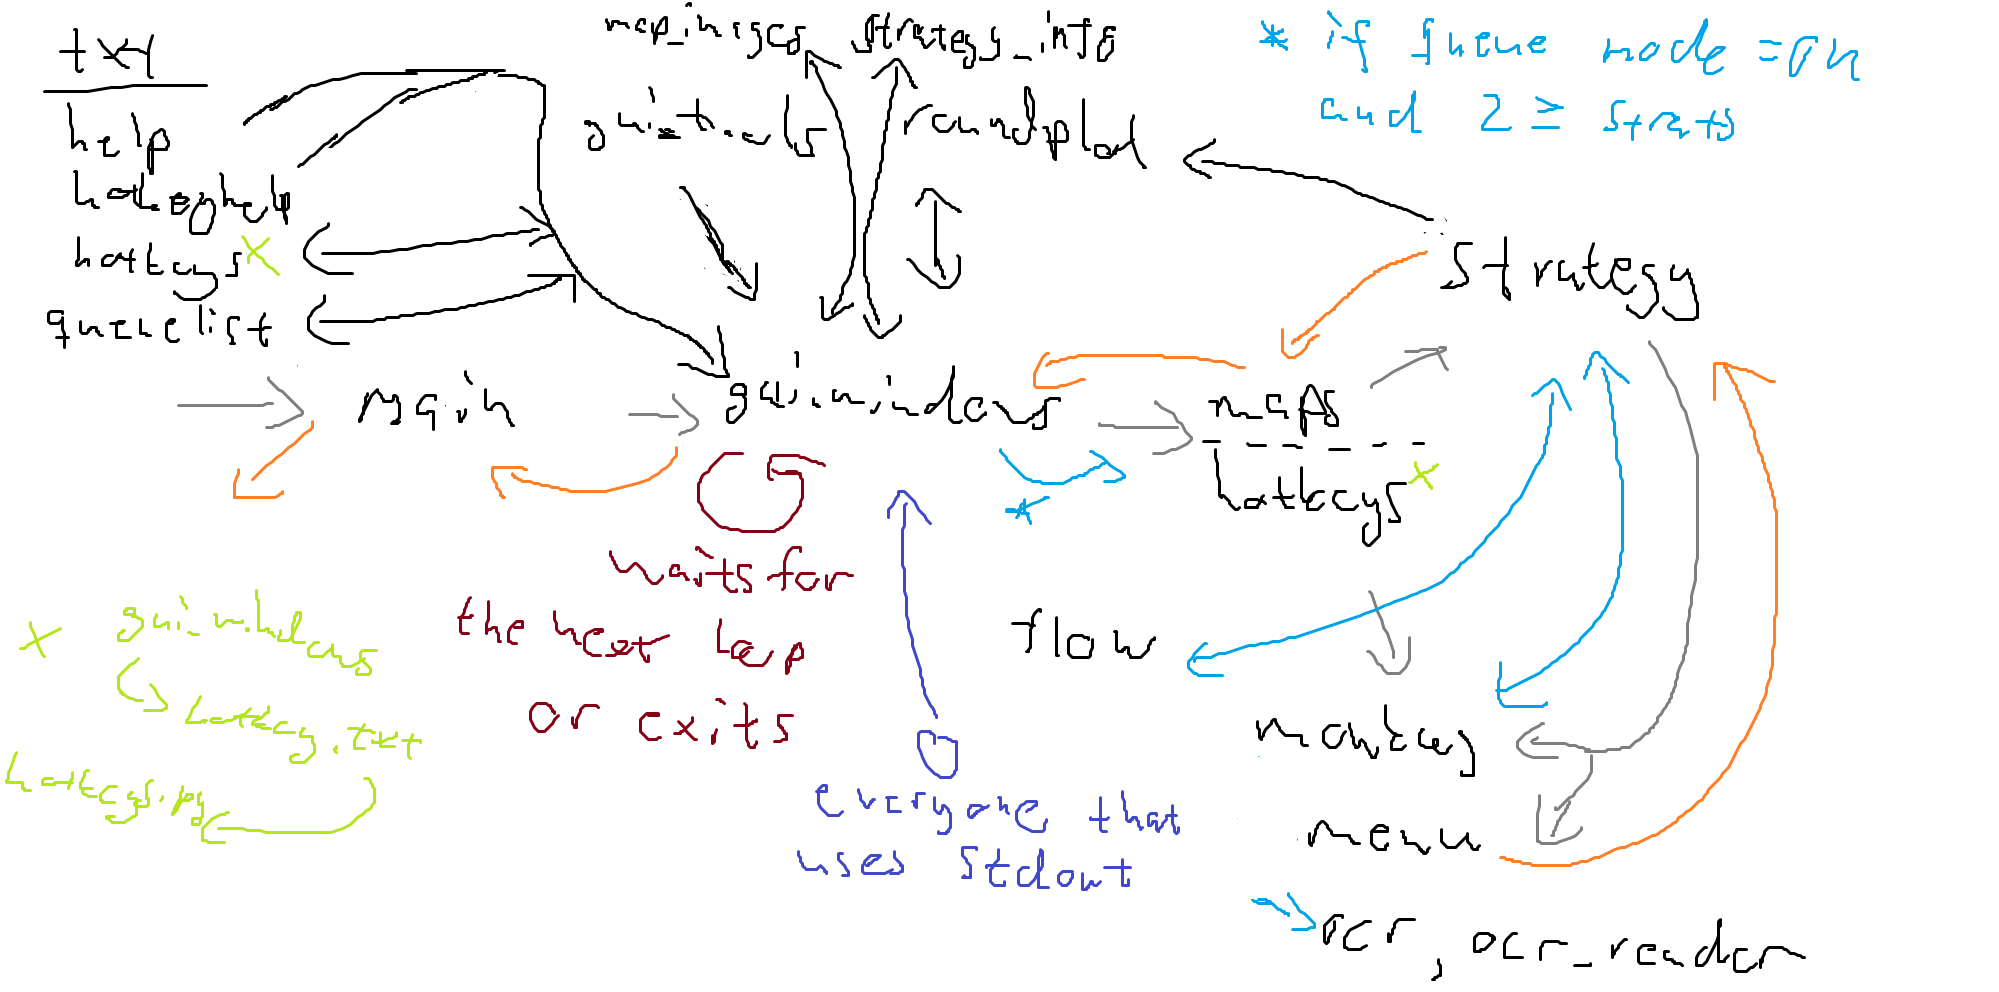 txt
help
hotkeyhelp
hotkeys x
queuelist
map_images strategy_info
gui_tools roundplot
* if queue mode = on
and 2 ≥ strats
strategy
main
gui_windows
maps
hotkeys x
*
waits for
the next loop
or exits
x gui_windows
hotkey.txt
hotkeys.py
flow
monkey
menu
everyone that
uses stdout
ocr, ocr_reader